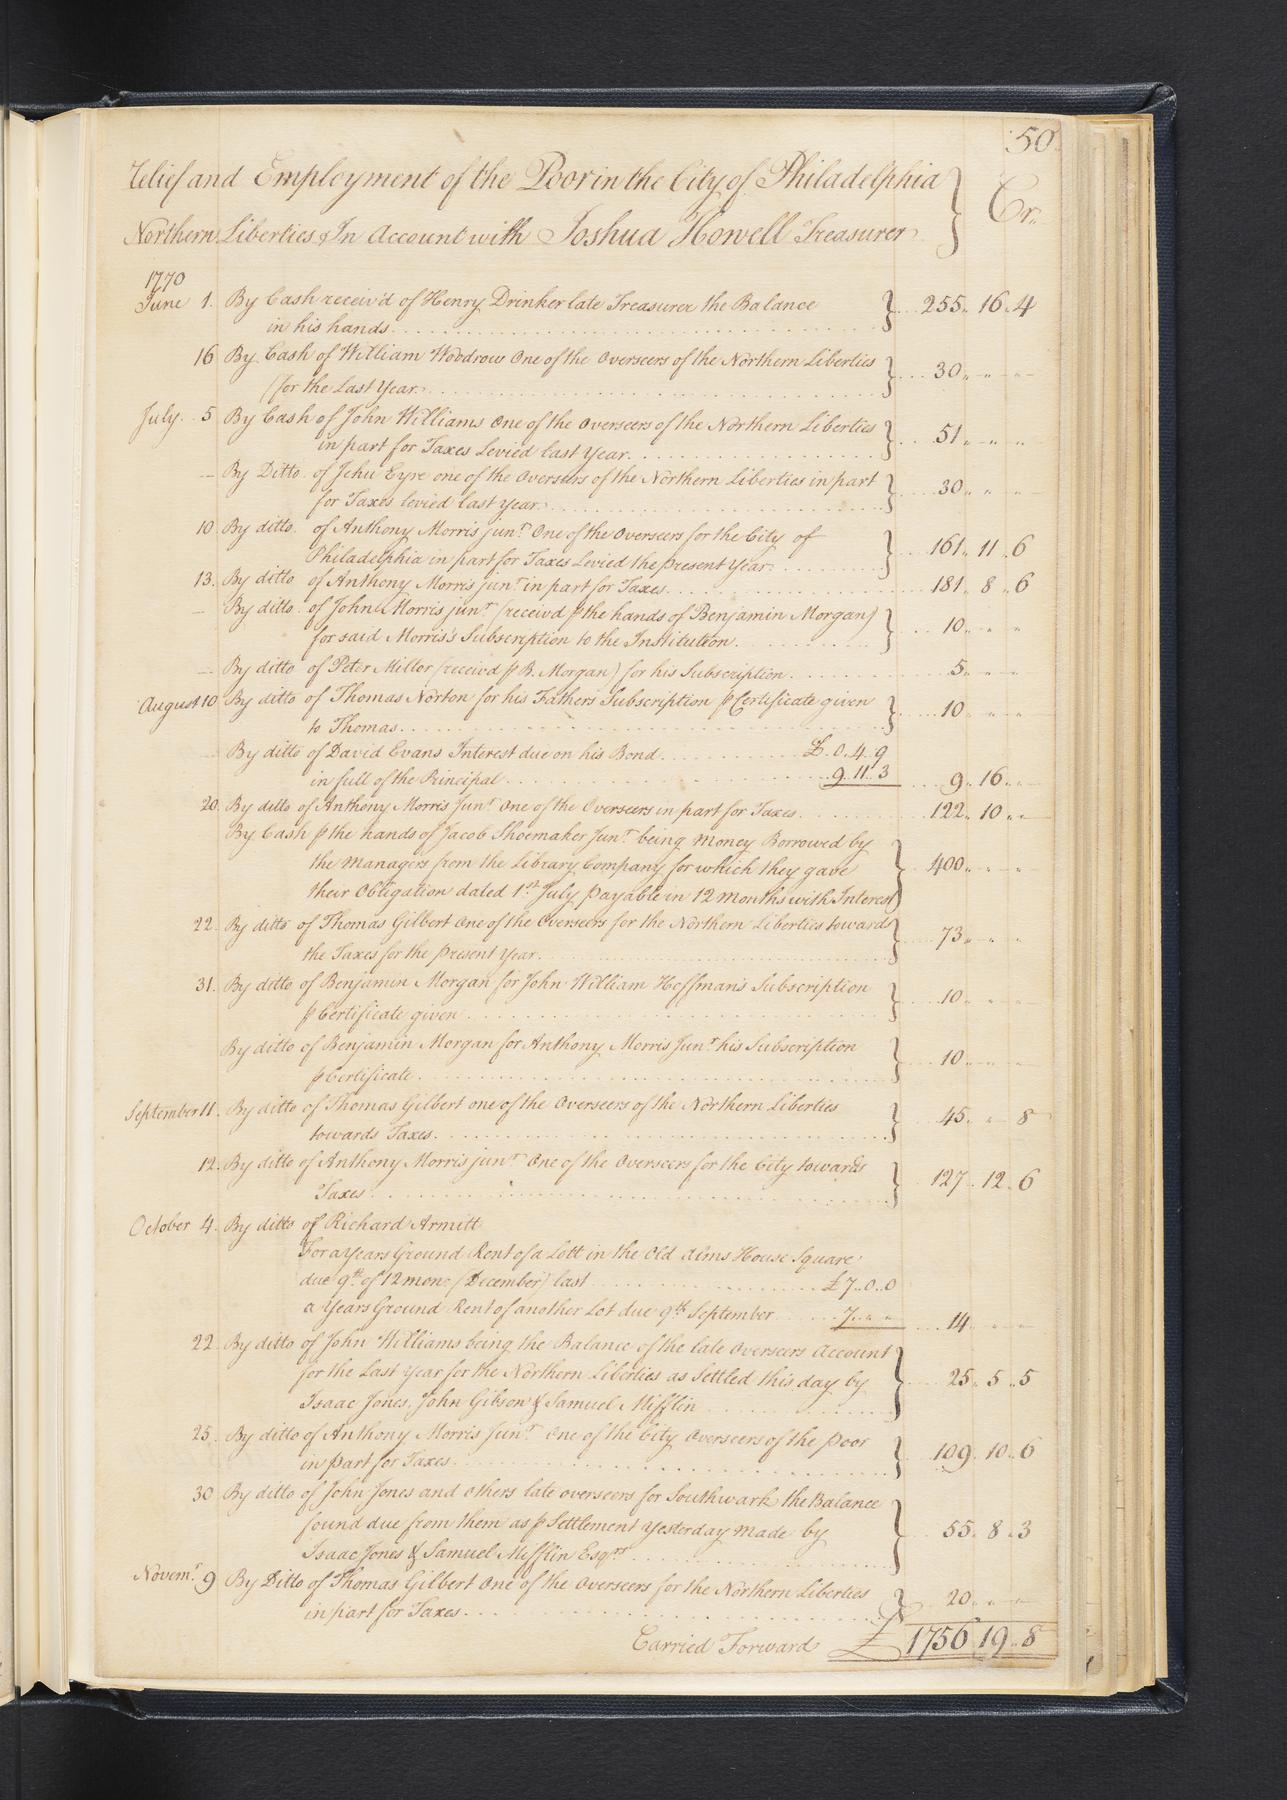 50
Relief and Employment of the Poor in the City of Philadelphia } Cr.
Northern Liberties &c In Account with Joshua Howell Treasurer
1770
June 1. By Cash receiv'd of Henry Drinker late Treasurer the Balance
in his hands } 255.. 16.. 4
16 By Cash of William Woodrow One of the Overseers of the Northern Liberties
for the Last Year } 30.. " "
July 5 By Cash of John Williams One of the Overseers of the Northern Liberties
in part for Taxes Levied last Year } 51.. " "
— By Ditto of Jehu Eyre one of the Overseers of the Northern Liberties in part
for Taxes levied last year } 30.. " "
10 By ditto of Anthony Morris junr. One of the Overseers for the City of
Philadelphia in part for Taxes Levied the present Year } 161.. 11.. 6
13. By ditto of Anthony Morris junr in part for Taxes 181.. 8.. 6
— By ditto of John Morris junr (receivd p the hands of Benjamin Morgan)
for said Morris's Subscription to the Institution } 10.. " "
— By ditto of Peter Miller (receivd p B. Morgan) for his Subscription 5.. " "
August 10 By ditto of Thomas Norton for his Fathers Subscription p Certificate given
to Thomas } 10.. " "
By ditto of David Evans Interest due on his Bond £.0..4..9
in full of the Principal 9..11..3 9.. 16.. "
20. By ditto of Anthony Morris Junr One of the Overseers in part for Taxes 122.. 10.. "
By Cash p the hands of Jacob Shoemaker Junr. being Money Borrowed by
the Managers from the Library Company for which they gave
their Obligation dated 1st July payable in 12 months with Interest } 400.. " "
22. By ditto of Thomas Gilbert One of the Overseers for the Northern Liberties towards
the Taxes for the present Year } 73.. " "
31. By ditto of Benjamin Morgan for John William Hoffman's Subscription
p Certificate given } 10.. " "
By ditto of Benjamin Morgan for Anthony Morris Junr his Subscription
p Certificate } 10.. " "
September 11. By ditto of Thomas Gilbert one of the Overseers of the Northern Liberties
towards Taxes } 45.. " 8
12. By ditto of Anthony Morris junr One of the Overseers for the City towards
Taxes } 127.. 12.. 6
October 4. By ditto of Richard Armitt
For a Years Ground Rent of a Lott in the Old Alms House Square
due 9th of 12 mon: (December) last £7..0..0
a Years Ground Rent of another Lot due 9th September 7.. " " 14.. " "
22. By ditto of John Williams being the Balance of the late Overseers Account
for the Last Year for the Northern Liberties as Settled this day by
Isaac Jones, John Gibson & Samuel Mifflin } 25.. 5.. 5
25. By ditto of Anthony Morris Junr One of the City Overseers of the poor
in part for Taxes } 109.. 10.. 6
30 By ditto of John Jones and others late overseers for Southwark the Balance
found due from them as p Settlement Yesterday made by
Isaac Jones & Samuel Mifflin Esqrs } 55.. 8.. 3
Novemr. 9 By Ditto of Thomas Gilbert One of the Overseers for the Northern Liberties
in part for Taxes } 20.. " "
Carried Forward £ 1756.. 19.. 8